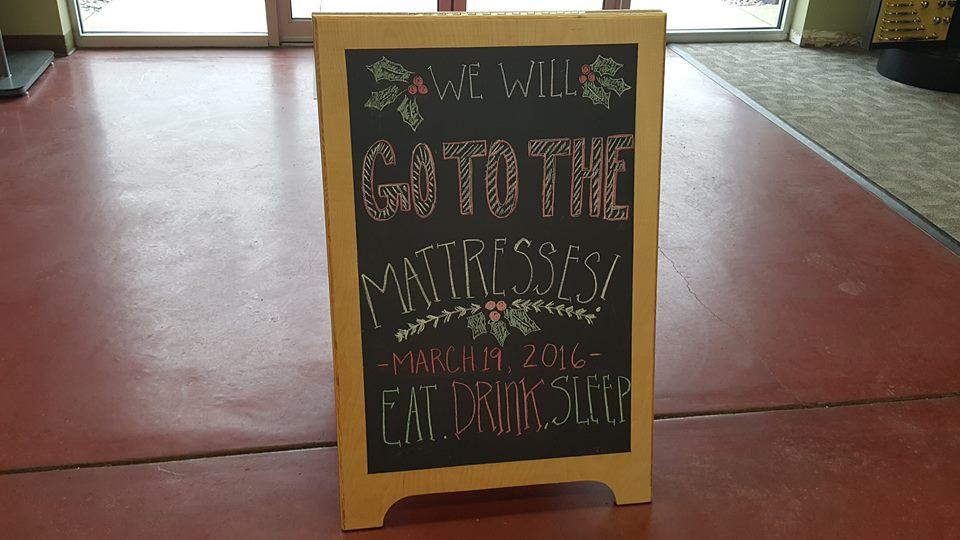 WE WILL
GO TO THE
MATTRESSES!
-MARCH 19, 2016-
EAT. DRINK. SLEEP